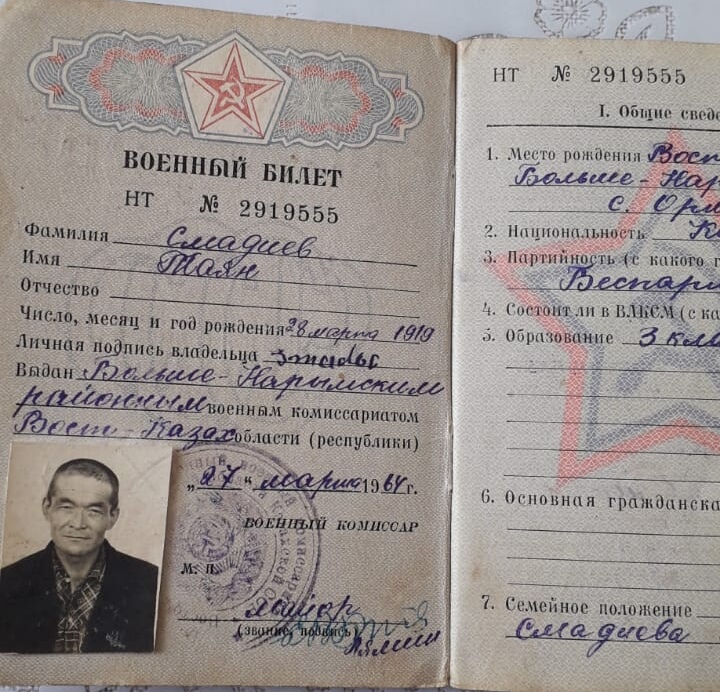 ВОЕННЫЙ БИЛЕТ
НТ № 2919555
Фамилия Смадиев
Имя Таян
Отчество
Число, месяц и год рождения 28 марта 1919
Личная подпись владельца
Выдан Больше-Нарымским
районным военным комиссариатом
Вост-Казах области (республики)
„27" марта 1964 г.
ВОЕННЫЙ КОМИССАР
М. П.
майор
(звание, подпись)
НТ № 2919555
I. Общие сведе
1. Место рождения Вост
Больше-Нар
с.
2. Национальность К
3. Партийность (с какого г
Беспарт
4. Состоит ли в ВЛКСМ (с ка
5. Образование 3 кла
6. Основная гражданска
7. Семейное положение
Смадиева